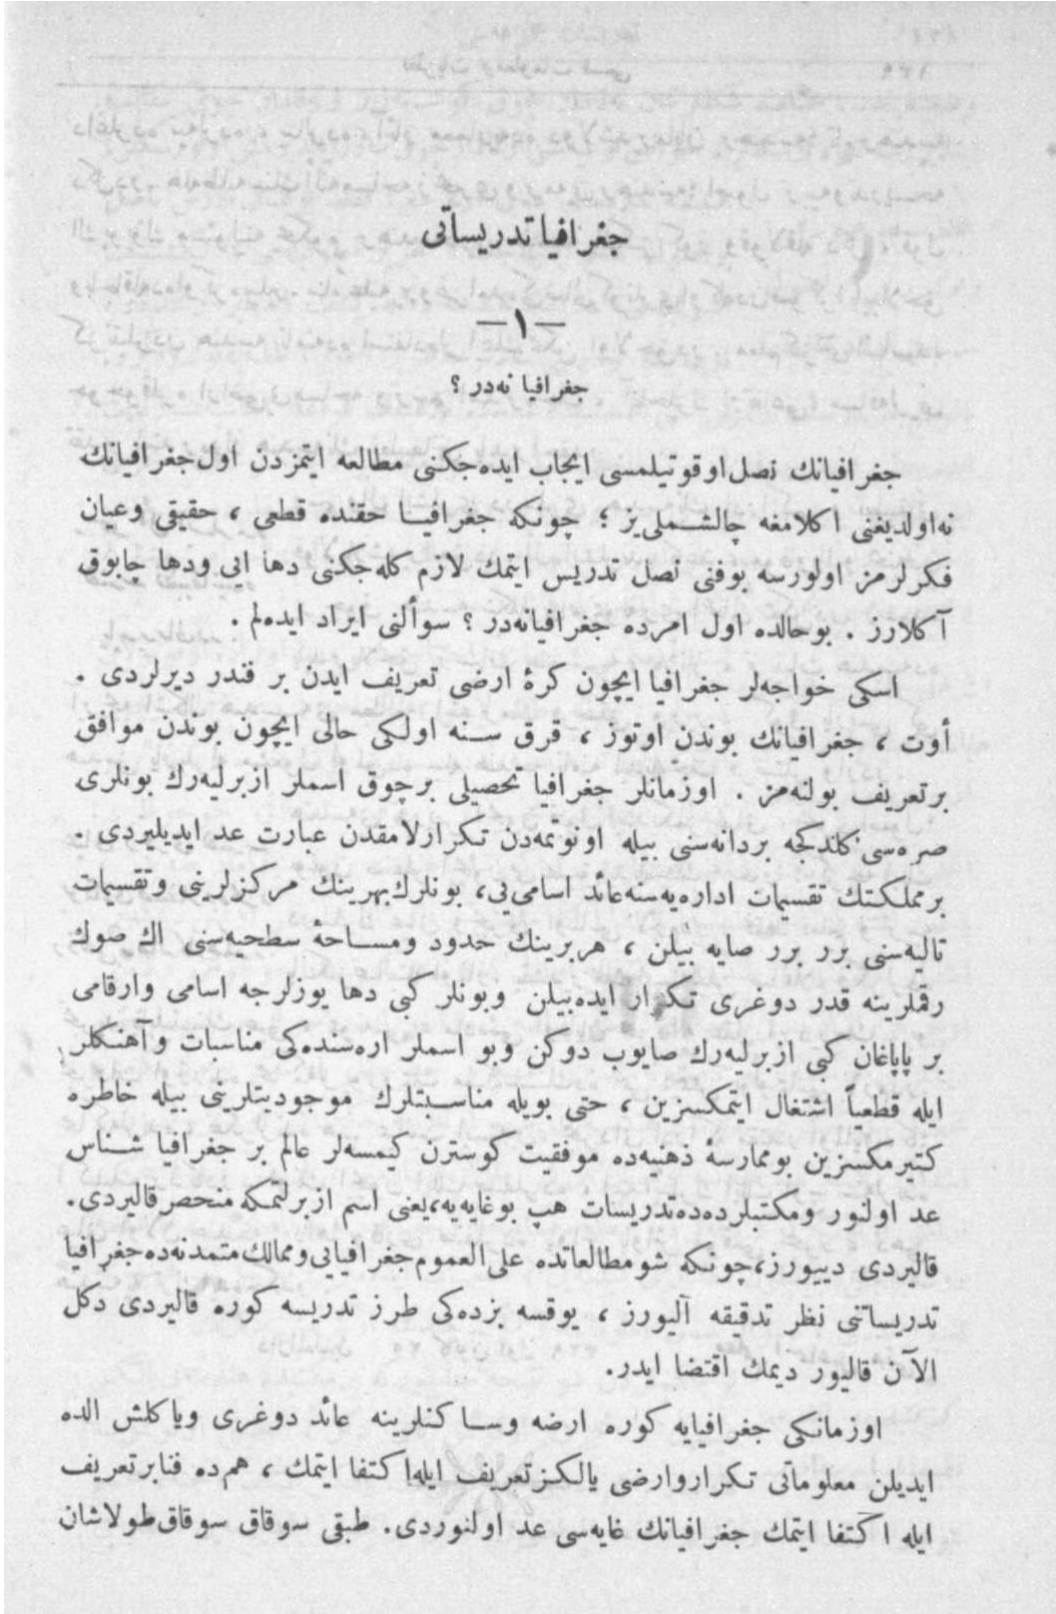 جغرافیا تدریساتی
—۱—
جغرافیا نه‌در ؟
جغرافیانك نصل اوقوتیلمسی ایجاب ایده‌جكنی مطالعه ایتمزدن اول جغرافیانك
نه‌اولدیغنی اكلامغه چالشـملی‌یز ؛ چونكه جغرافیـا حقنده قطعی ، حقیقی وعیان
فكرلرمز اولورسه بوفنی نصل تدریس ایتمك لازم كله‌جكنی دها ایی ودها چابوق
آكلارز . بوحالده اول امرده جغرافیانه‌در ؟ سوألنی ایراد ایده‌لم .
اسكی خواجه‌لر جغرافیا ایچون كرۀ ارضی تعریف ایدن بر فندر دیرلردی .
أوت ، جغرافیانك بوندن اوتوز ، قرق سـنه اولكی حالی ایچون بوندن موافق
برتعریف بولنه‌مز . اوزمانلر جغرافیا تحصیلی برچوق اسملر ازبرلیه‌رك بونلری
صره‌سی كلدكجه بردانه‌سنی بیله اونوتمه‌دن تكرارلامقدن عبارت عد ایدیلیردی .
برمملكتك تقسیمات اداره‌یه‌سنه‌عائد اسامی‌یی، بونلرك‌بهرینك مركزلرینی وتقسیمات
تالیه‌سنی برر برر صایه بیلن ، هربرینك حدود ومسـاحۀ سطحیه‌سنی اك صوك
رقملرینه قدر دوغری تكرار ایده‌بیلن وبونلر كبی دها یوزلرجه اسامی وارقامی
بر پاپاغان كبی ازبرلیه‌رك صایوب دوكن وبو اسملر اره‌سنده‌كی مناسبات وآهنكلر
ایله قطعیاً اشتغال ایتمكسزین ، حتی بویله مناسـبتلرك موجودیتلرینی بیله خاطره
كتیرمكسزین بوممارسۀ ذهنیه‌ده موفقیت كوسترن كیمسه‌لر عالم بر جغرافیا شـناس
عد اولنور ومكتبلرده‌ده‌تدریسات هپ بوغایه‌یه،یعنی اسم ازبرلتمكه منحصرقالیردی.
قالیردی دییورز،چونكه شومطالعاتده علی‌العموم‌جغرافیایی‌وممالك‌متمدنه‌ده‌جغرافیا
تدریساتنی نظر تدقیقه آلیورز ، یوقسه بزده‌كی طرز تدریسه كوره قالیردی دكل
الآن قالیور دیمك اقتضا ایدر.
اوزمانكی جغرافیایه كوره ارضه وسـاكنلرینه عائد دوغری ویاكلش الده
ایدیلن معلوماتی تكرار وارضی یالكز تعریف ایله‌اكتفا ایتمك ، هم‌ده فنابرتعریف
ایله اكتفا ایتمك جغرافیانك غایه‌سی عد اولنوردی. طبقی سوقاق سوقاق‌طولاشان